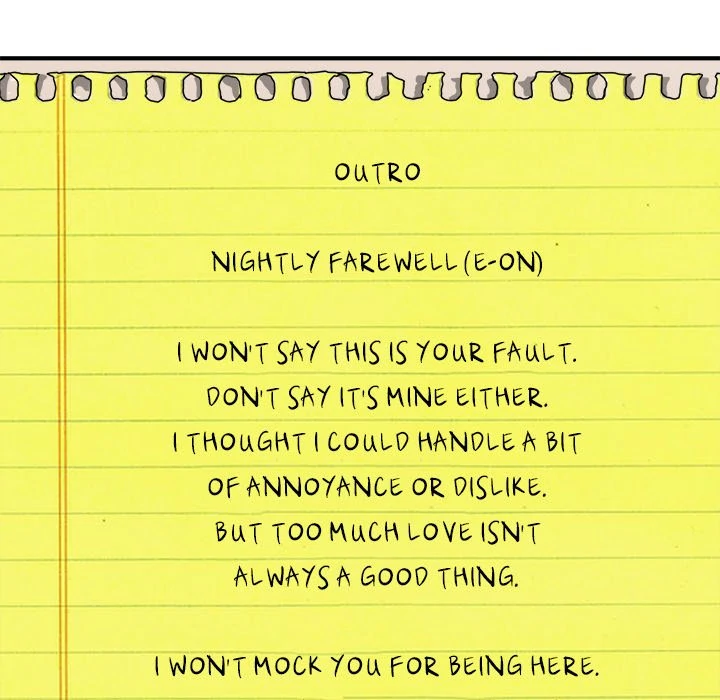 OUTRO
NIGHTLY FAREWELL (E-ON)
I WON'T SAY THIS IS YOUR FAULT.
DON'T SAY IT'S MINE EITHER.
I THOUGHT I COULD HANDLE A BIT
OF ANNOYANCE OR DISLIKE.
BUT TOO MUCH LOVE ISN'T
ALWAYS A GOOD THING.
I WON'T MOCK YOU FOR BEING HERE.